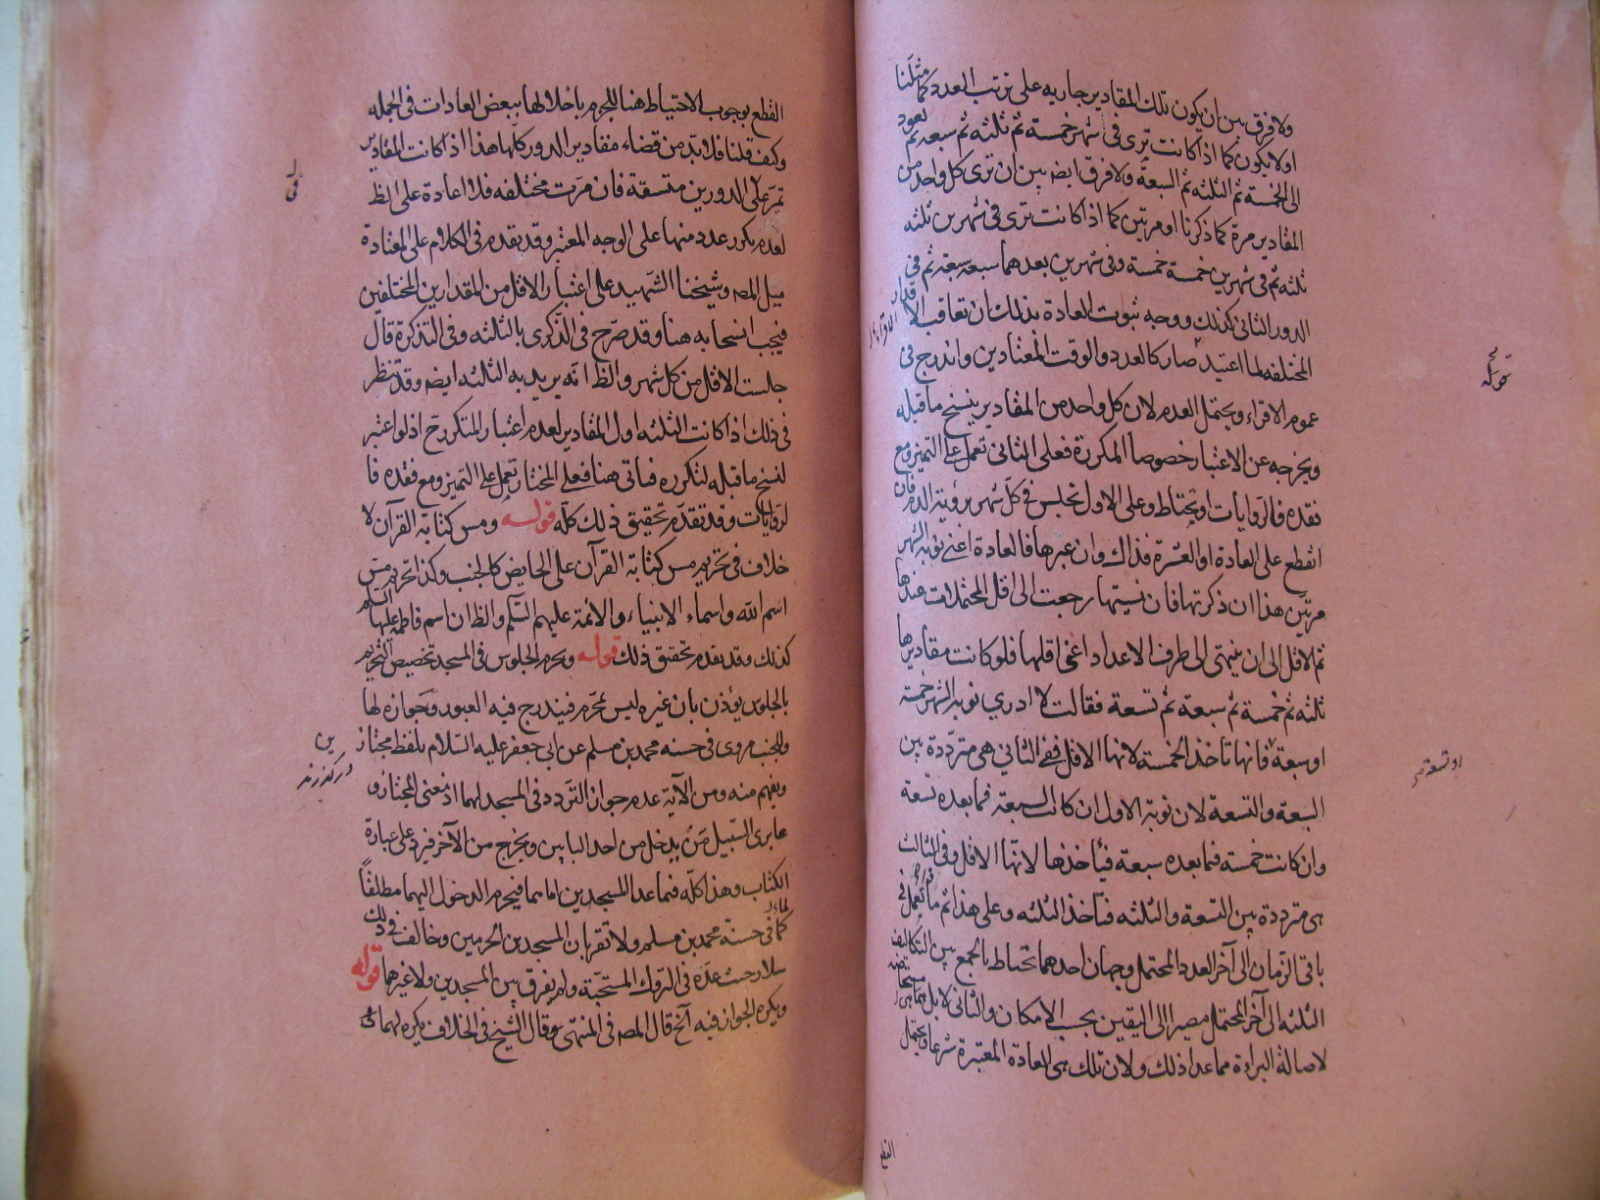 ولا فرق بين ان يكون تلك المقادير جاريه على ترتب العدد كما مثلنا
او لا يكون كما اذا كانت ترى فى شهر خمسة ثم ثلثه ثم سبعه ثم تعود
الى الخمسة ثم الثلثه ثم السبعة ولا فرق ايضا بين ان ترى كل واحد من
المقادير مرة كما ذكرنا او مرتين كما اذا كانت ترى فى شهرين ثلثه
ثلثه ثم فى شهرين خمسة خمسة وفى شهرين بعدهما سبعه سبعه ثم فى
الدور الثانى كذلك ووجه ثبوت العادة بذلك ان تعاقب الاقدار
المختلفه لما اعتيد صار كالعدد والوقت المعتادين واندرج فى
عموم الاقراء ويحتمل العدم لان كل واحد من المقادير ينسخ ما قبله
ويخرجه عن الاعتبار خصوصا المكررة فعلى الثانى تعمل على التميز ومع
فقده فالروايات او تحتاط وعلى الاول تجلس فى كل شهر برؤية الدم فان
انقطع على العادة او العشرة فذاك وان عبرها فالعادة اعنى نوبة الشهر
مرتين هذا ان ذكرتها فان نسيتها رجعت الى اقل المحتملات عندها
ثم الاقل الى ان ينتهى الى طرف الاعداد اعنى اقلها فلو كانت مقاديرها
ثلثه ثم خمسة ثم سبعة ثم تسعة فقالت لا ادري نوبة الشهر خمسة
او سبعة فانها تاخذ الخمسة لانها الاقل ففى الثانى هى مترددة بين
السبعة والتسعة لان نوبة الاول ان كانت السبعة فما بعده تسعة
وان كانت خمسة فما بعده سبعة فيأخذها لانها الاقل وفى الثالث
هى مترددة بين التسعة والثلثه فتأخذ الثلثه وعلى هذا ثم ما تعمل فى
باقى الزمان الى آخر العدد المحتمل وجهان احدهما تحتاط بالجمع بين التكاليف
الثلثه الى آخر المحتمل مصيرا الى اليقين بحسب الامكان والثانى لا بل
لاصالة البراءة مما عدا ذلك ولان تلك هى العادة المعتبرة شرعا ويحتمل
او تسعة
القطع
القطع بوجوب الاحتياط هنا للجزم باخلالها ببعض العادات فى الجمله
وكيف قلنا فلا بد من قضاء مقادير الدور كلها هذا اذا كانت المقادير
تمر على الدورين متسقة فان مرت مختلفه فلا اعادة على الظ
لعدم تكرر عدد منها على الوجه المعتبر وقد تقدم فى الكلام على المعتادة
ميل المص وشيخنا الشهيد على اعتبار الاقل من المقدارين المختلفين
فيجب انسحابه هنا وقد صرح فى الذكرى بالثلثه وفى التذكرة قال
جلست الاقل من كل شهر والظ انه يريد به الثلثه ايضا وقد تنظر
فى ذلك اذا كانت الثلثه اول المقادير لعدم اعتبار المتكرر ح اذ لو اعتبر
لنسخ ما قبله لتكرره فيأتى هنا فعلى المختار تعمل على التميز ومع فقده فا
لروايات وقد تقدم تحقيق ذلك كله قوله ومس كتابة القرآن لا
خلاف فى تحريم مس كتابة القرآن على الحايض كالجنب وكذا تحريم مس
اسم الله واسماء الانبياء والائمة عليهم السلم والظ ان اسم فاطمة عليها السلم
كذلك وقد تقدم تحقيق ذلك قوله ويحرم الجلوس فى المسجد تخصيص التحريم
بالجلوس يؤذن بان غيره ليس بمحرم فيندرج فيه العبور وجوازه لها
وللجنب مروى فى حسنه محمد بن مسلم عن ابى جعفر عليه السلام بلفظ مجتاز
ويفهم منه ومن الآية عدم جواز التردد فى المسجد لهما اذ معنى المجتاز و
عابرى السبيل من يدخل من احد البابين ويخرج من الآخر فيرد على عبارة
الكتاب وهذا كله فيما عدا المسجدين اما هما فيحرم الدخول اليهما مطلقاً
كما فى حسنة محمد بن مسلم ولا تقربان المسجدين الحرمين وخالف فى ذلك
سلار حيث عده فى التروك المستحبة ولم يفرق بين المسجدين ولا غيرها قوله
ويكره الجواز فيه آلخ قال المص فى المنتهى وقال الشيخ فى الخلاف يكره لهما